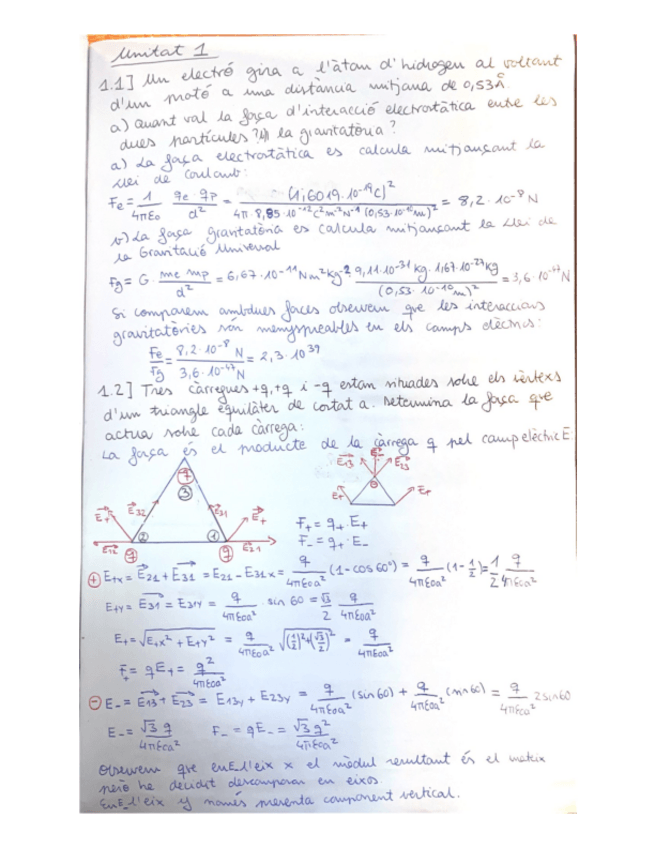 Unitat 1
1.1] Un electró gira a l'àtom d'hidrogen al voltant
d'un protó a una distància mitjana de 0,53Å.
a) Quant val la força d'interacció electrostàtica entre les
dues partícules? I la gravitatòria?
a) La força electrostàtica es calcula mitjançant la
Llei de Coulomb:
Fe = 1/4πε₀ qe·qp/d² = (1,6019·10⁻¹⁹C)²/4π·8,85·10⁻¹²C²m⁻²N⁻¹(0,53·10⁻¹⁰m)² = 8,2·10⁻⁸N
b) La força gravitatòria es calcula mitjançant la Llei de
la Gravitació Universal
Fg = G· me mp/d² = 6,67·10⁻¹¹Nm²kg⁻² 9,11·10⁻³¹kg·1,67·10⁻²⁷kg/(0,53·10⁻¹⁰m)² = 3,6·10⁻⁴⁷N
Si comparem ambdues forces observem que les interaccions
gravitatòries són menyspreables en els camps elèctrics:
Fe/Fg = 8,2·10⁻⁸N/3,6·10⁻⁴⁷N = 2,3·10³⁹
1.2] Tres càrregues +q, +q i -q estan situades sobre els vèrtexs
d'un triangle equilàter de costat a. Determina la força que
actua sobre cada càrrega:
La força és el producte de la càrrega q pel camp elèctric E:
q 3 E32 E31 E+ E+ 2 1 E12 q q E21
E13 E- E23 E+ E+
F+ = q+·E+
F- = q+·E-
+ E+x = E21 + E31 = E21 - E31x = q/4πε₀a² (1-cos60°) = q/4πε₀a² (1-1/2) = 1/2 q/4πε₀a²
E+y = E31 = E31y = q/4πε₀a² sin 60 = √3/2 q/4πε₀a²
E+ = √E+x² + E+y² = q/4πε₀a² √(1/2)²+(√3/2)² = q/4πε₀a²
F+ = qE+ = q²/4πε₀a²
- E- = E13 + E23 = E13y + E23y = q/4πε₀a² (sin60) + q/4πε₀a² (sin60) = q/4πε₀a² 2sin60
E- = √3 q/4πε₀a² F- = qE- = √3 q²/4πε₀a²
Observem que en E+ l'eix x el mòdul resultant és el mateix
però he decidit descompondre en eixos.
En E- l'eix y només presenta component vertical.